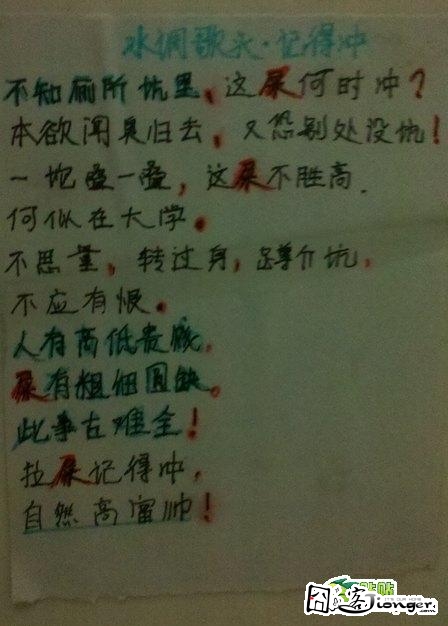 水调歌头·记得冲
不知厕所坑里，这屎何时冲？
本欲闻臭归去，又恐别处没坑！
一坨叠一叠，这屎不胜高．
何似在大学。
不思量，转过身，蹲介坑，
不应有恨。
人有高低贵贱，
屎有粗细圆缺。
此事古难全！
拉屎记得冲，
自然高富帅！
囧客
Jionger.com